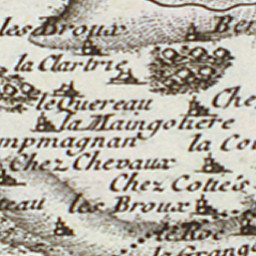 les Broux
Ber
la Clartrie
le Quereau
Che
la Maingotiere
mpmagnan
la Co
Chez Chevaux
Chez Cotiés
teau
les Broux
le Roi
la Grange